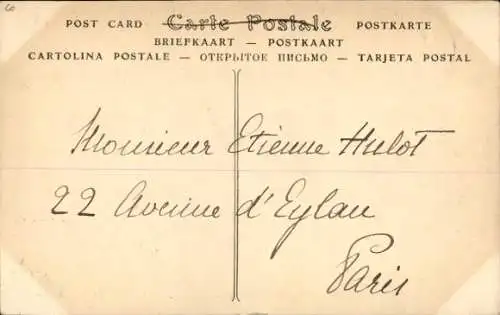 60
POST CARD Carte Postale POSTKARTE
BRIEFKAART — POSTKAART
CARTOLINA POSTALE — ОТКРЫТОЕ ПИСЬМО — TARJETA POSTAL
Monsieur Etienne Hulot
22 Avenue d'Eylau
Paris